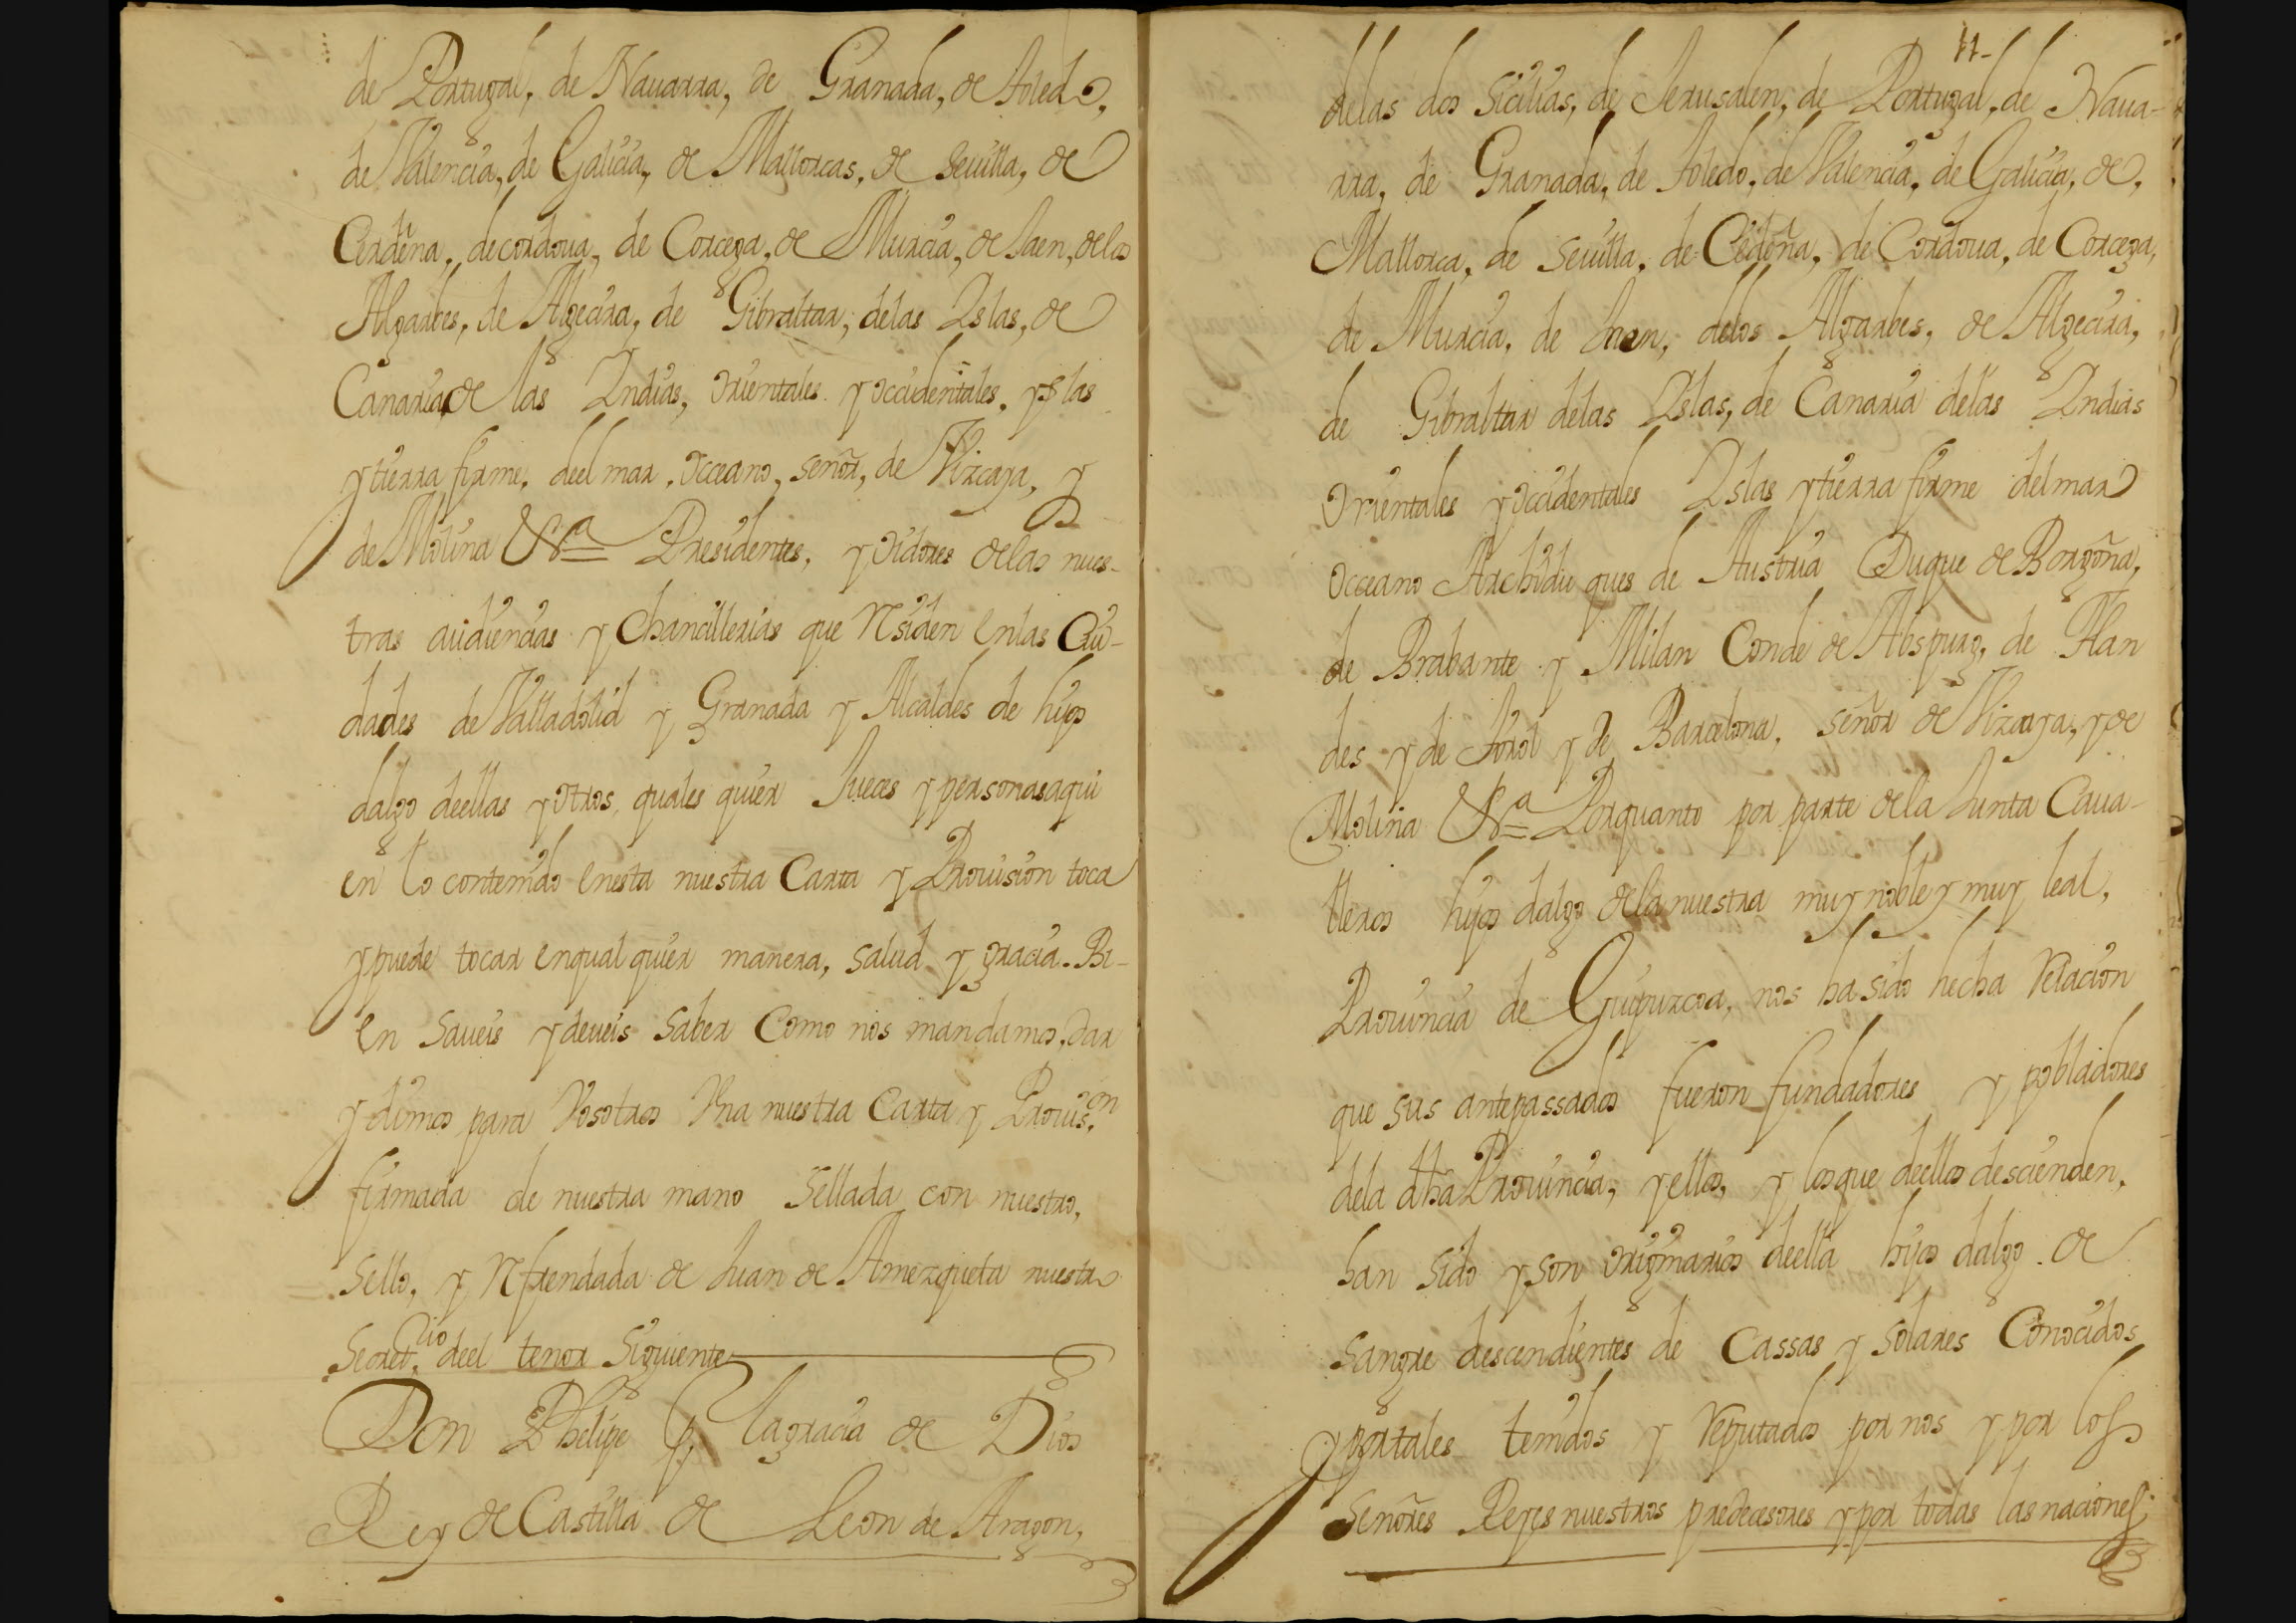 de Portugal, de Nauarra, de Granada, de toledo,
de Valencia, de Galicia, de Mallorcas, de seuilla, de
Cerdeña, de cordoua, de Corcega, de Murcia, de Jaen, de los
Algarbes, de Algecira, de Gibraltar, de las Yslas, de
Canaria, de las Yndias, orientales y occidentales, yslas
y tierra firme, deel mar, occeano, señor, de Vizcaya, y
de Molina &ª Presidentes, y oidores de las nues-
tras audiencias y Chancillerias que Residen en las Ciu-
dades de Valladolid y Granada y Alcaldes de hijos
dalgo deellas y otros quales quier Jueces y personas a qui
en lo contenido en esta nuestra Carta y Prouision toca
y puede tocar en qual quier manera, salud y gracia. Bi-
en saueis y deueis saber Como nos mandamos, dar
y dimos para Vosotros Vna nuestra Carta y Prouis.on
firmada de nuestra mano sellada con nuestro,
sello, y Refrendada de Juan de Amezqueta nuestro
Secret.rio deel tenor siguiente
Don Phelipe p, la gracia de Dios
Rey de Castilla de Leon de Aragon,
11-
de las dos sicilias, de Jerusalen, de Portugal, de Naua-
rra, de Granada, de toledo, de Valencia, de Galicia, de,
Mallorca, de seuilla, de Cedoña, de Cordoua, de Corcega,
de Murcia, de Jaen, de los Algarbes, de Algecira,
de Gibraltar de las Yslas, de Canaria de las Yndias
orientales y occidentales Yslas y tierra firme del mar
occeano Archidu ques de Austria Duque de Borgoña,
de Brabante y Milan Conde de Abspurg, de Flan
des y de tirol y de Barcelona, señor de Vizcaya, y de
Molina &ª Por quanto por parte de la Junta Caua-
lleros hijos dalgo de la nuestra muy noble y muy leal,
Prouincia de Guipuzcoa, nos ha sido hecha Relacion
que sus antepassados fueron fundadores y pobladores
de la dha Prouincia, y ellos, y los que deellos descienden,
han sido y son originarios deella hijos dalgo de
sangre descendientes de Cassas y solares Conocidos,
y por tales tenidos y Reputados por nos y por los
señores Reyes nuestros predecesores y por todas las naciones